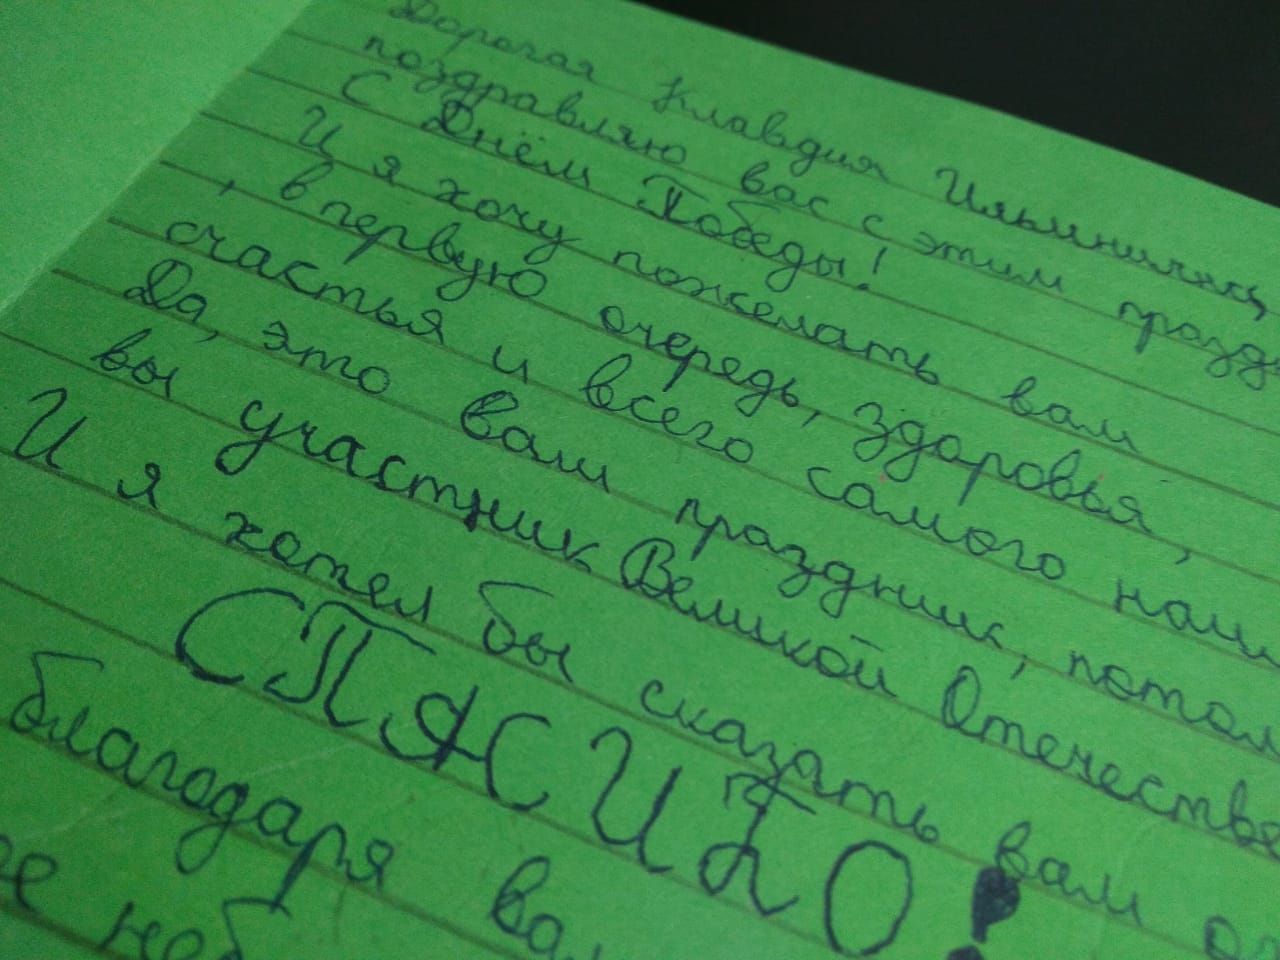 Дорогая Клавдия Ильинична,
поздравляю вас с этим празд
С Днём Победы!
И я хочу пожелать вам
, в первую очередь, здоровья,
счастья и всего самого наи
Да, это ваш праздник, потом
вы участник Великой Отечестве
И я хотел бы сказать вам ог
СПАСИБО!
благодаря ва
ое неб